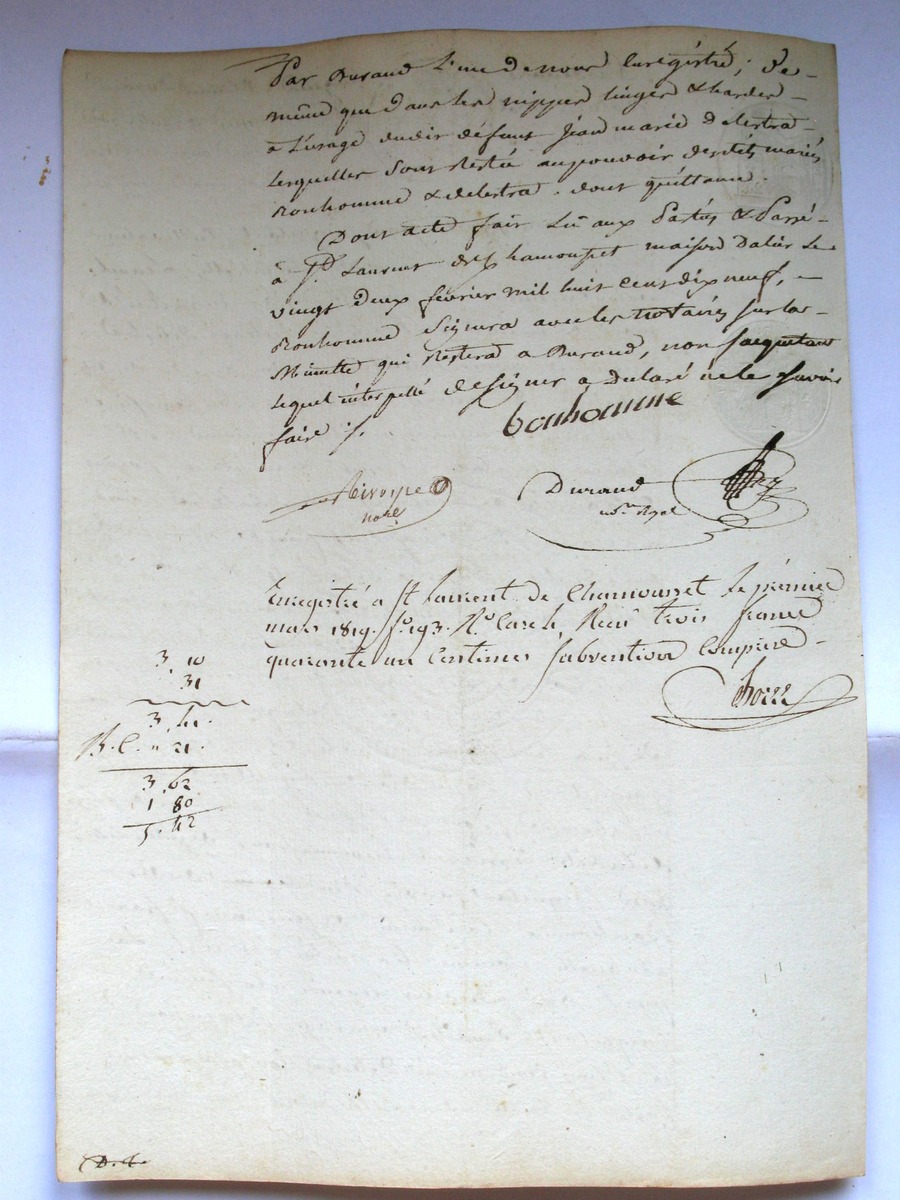 Par Durand L'un de nous Enregistré ; De-
même que dans les nippes linges & hardes
a L'usage dudit défunt Jean marie Delestra
lesquelles sont Resté au pouvoir desdits mariés
Bonhomme & delestra . dont quittance .
Dont acte fait Lû aux Parties & Passé
à St. Laurent de Chamousset maison Dalier Le
vingt deux février mil huit cent dix neuf, -
Bonhomme Signera avec les notaires sur la
Minutte qui Restera a Durand, non Jacquetant
lequel interpellé de signer a Déclaré ne le savoir
faire ./.
bonhomme
nore.
Durand
nore. Royal
Enregistré a St laurent de Chamousset le prémier
mars 1819. fo. 193. Ro. Case h, Reçu trois francs
quarante un Centimes subvention Comprise -
3, 10
31
3, 41.
R. C. " 21.
3, 62
1 80
5. 42
D. L.